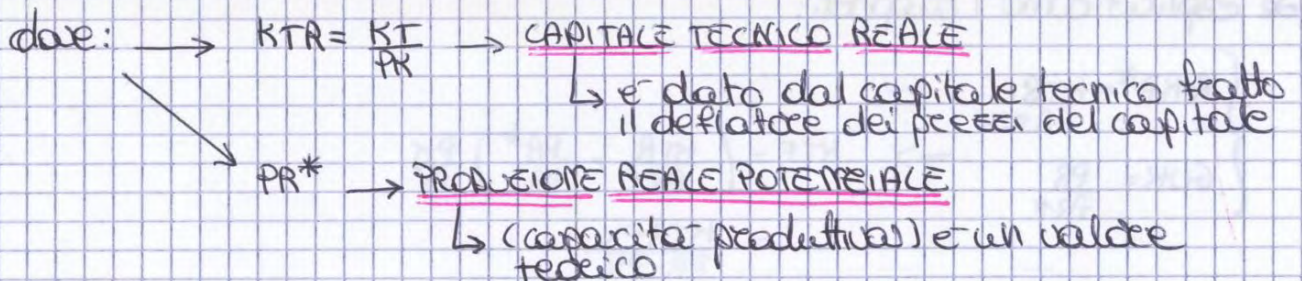 dove: → KTR = KT/PK → CAPITALE TECNICO REALE
↳ è dato dal capitale tecnico fratto
il deflatore dei prezzi del capitale
PR* → PRODUZIONE REALE POTENZIALE
↳ (capacità produttiva) è un valore
teorico